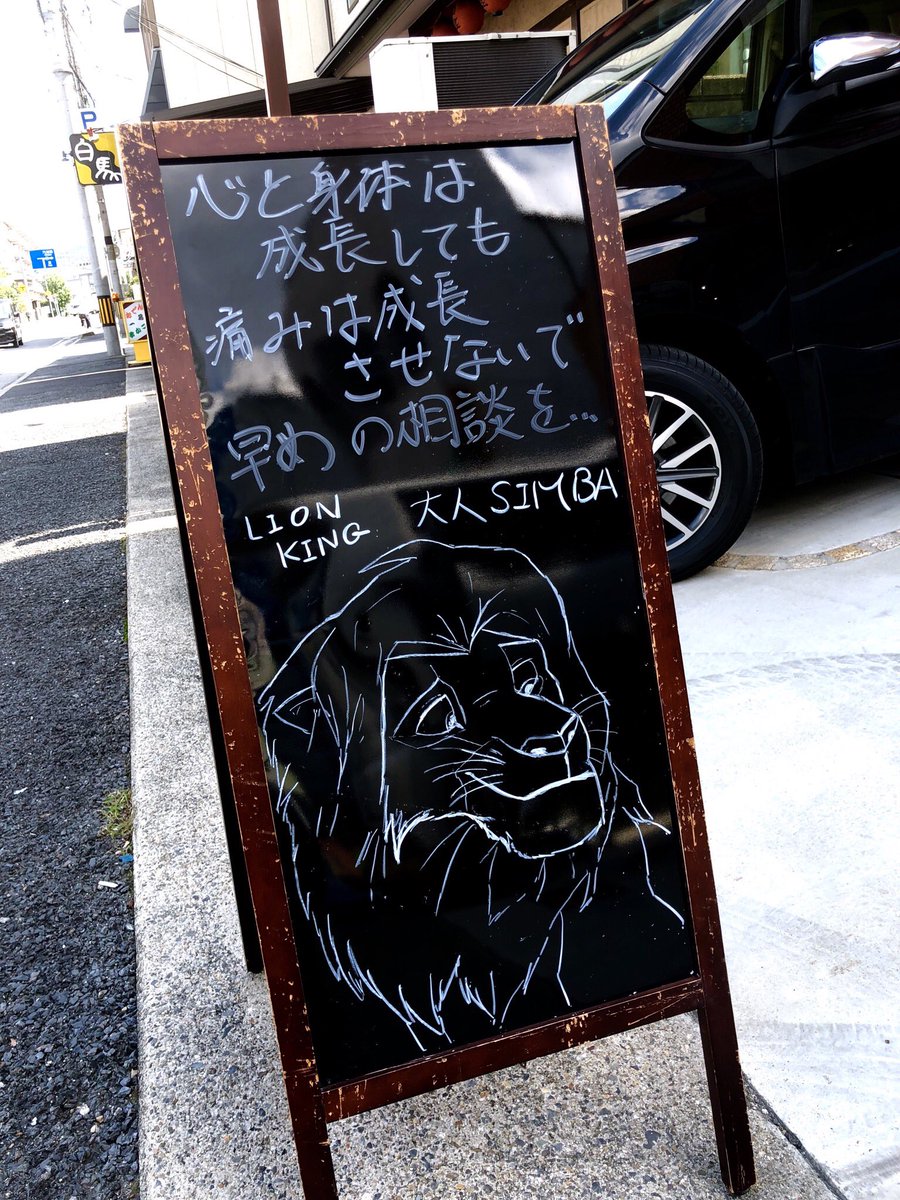 P
白馬
心と身体は
成長しても
痛みは成長
させないで
早めの相談を...
LION
KING
大人SIMBA